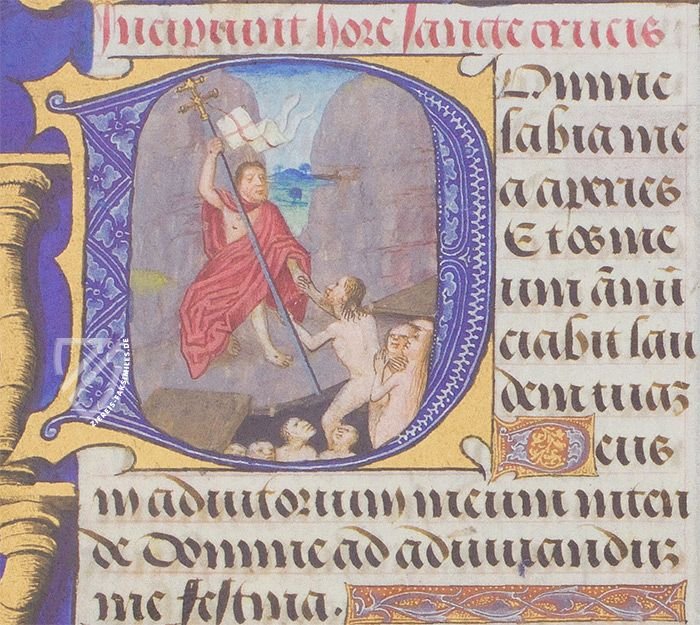 Incipiunt hore sancte crucis
Domine
labia me
a aperies
Et os me
um ānū
ciabit lau
dem tuaʒ
Deus
in adiutorium meum inten
de Domine ad adiuuanduʒ
me festina.
ZIEREIS-FAKSIMILES.DE